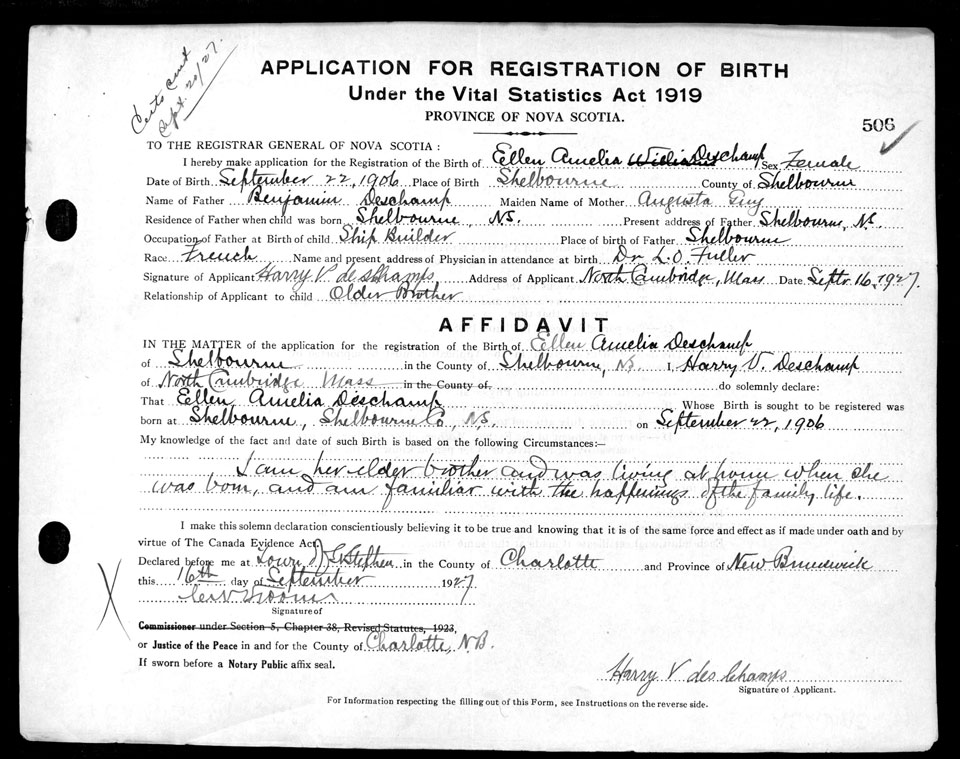 Certs Cert
Sept. 20/27.
APPLICATION FOR REGISTRATION OF BIRTH
Under the Vital Statistics Act 1919
PROVINCE OF NOVA SCOTIA.
506
TO THE REGISTRAR GENERAL OF NOVA SCOTIA:
I hereby make application for the Registration of the Birth of Ellen Amelia Williams Deschamp Sex Female
Date of Birth September 22, 1906 Place of Birth Shelbourne County of Shelbourne
Name of Father Benjamin Deschamp Maiden Name of Mother Augusta Guy
Residence of Father when child was born Shelbourne, N.S. Present address of Father Shelbourne, N.S.
Occupation of Father at Birth of child Ship Builder Place of birth of Father Shelbourne
Race French Name and present address of Physician in attendance at birth Dr L.O. Fuller
Signature of Applicant Harry V des Champs Address of Applicant North Cambridge, Mass Date Septr 16, 1927.
Relationship of Applicant to child Older Brother
AFFIDAVIT
IN THE MATTER of the application for the registration of the Birth of Ellen Amelia Deschamp
of Shelbourne in the County of Shelbourne, N.S. I, Harry V. Deschamp
of North Cambridge Mass in the County of do solemnly declare:
That Ellen Amelia Deschamp Whose Birth is sought to be registered was
born at Shelbourne, Shelbourne Co, N.S. on September 22, 1906
My knowledge of the fact and date of such Birth is based on the following Circumstances:—
I am her elder brother and was living at home when she
was born, and am familiar with the happenings of the family life.
I make this solemn declaration conscientiously believing it to be true and knowing that it is of the same force and effect as if made under oath and by
virtue of The Canada Evidence Act.
Declared before me at Town of St Stephen in the County of Charlotte and Province of New Brunswick
this 16th day of September 1927
Signature of
Commissioner under Section 5, Chapter 38, Revised Statutes, 1923,
or Justice of the Peace in and for the County of Charlotte, N.B.
If sworn before a Notary Public affix seal.
Harry V des Champs
Signature of Applicant.
For Information respecting the filling out of this Form, see Instructions on the reverse side.